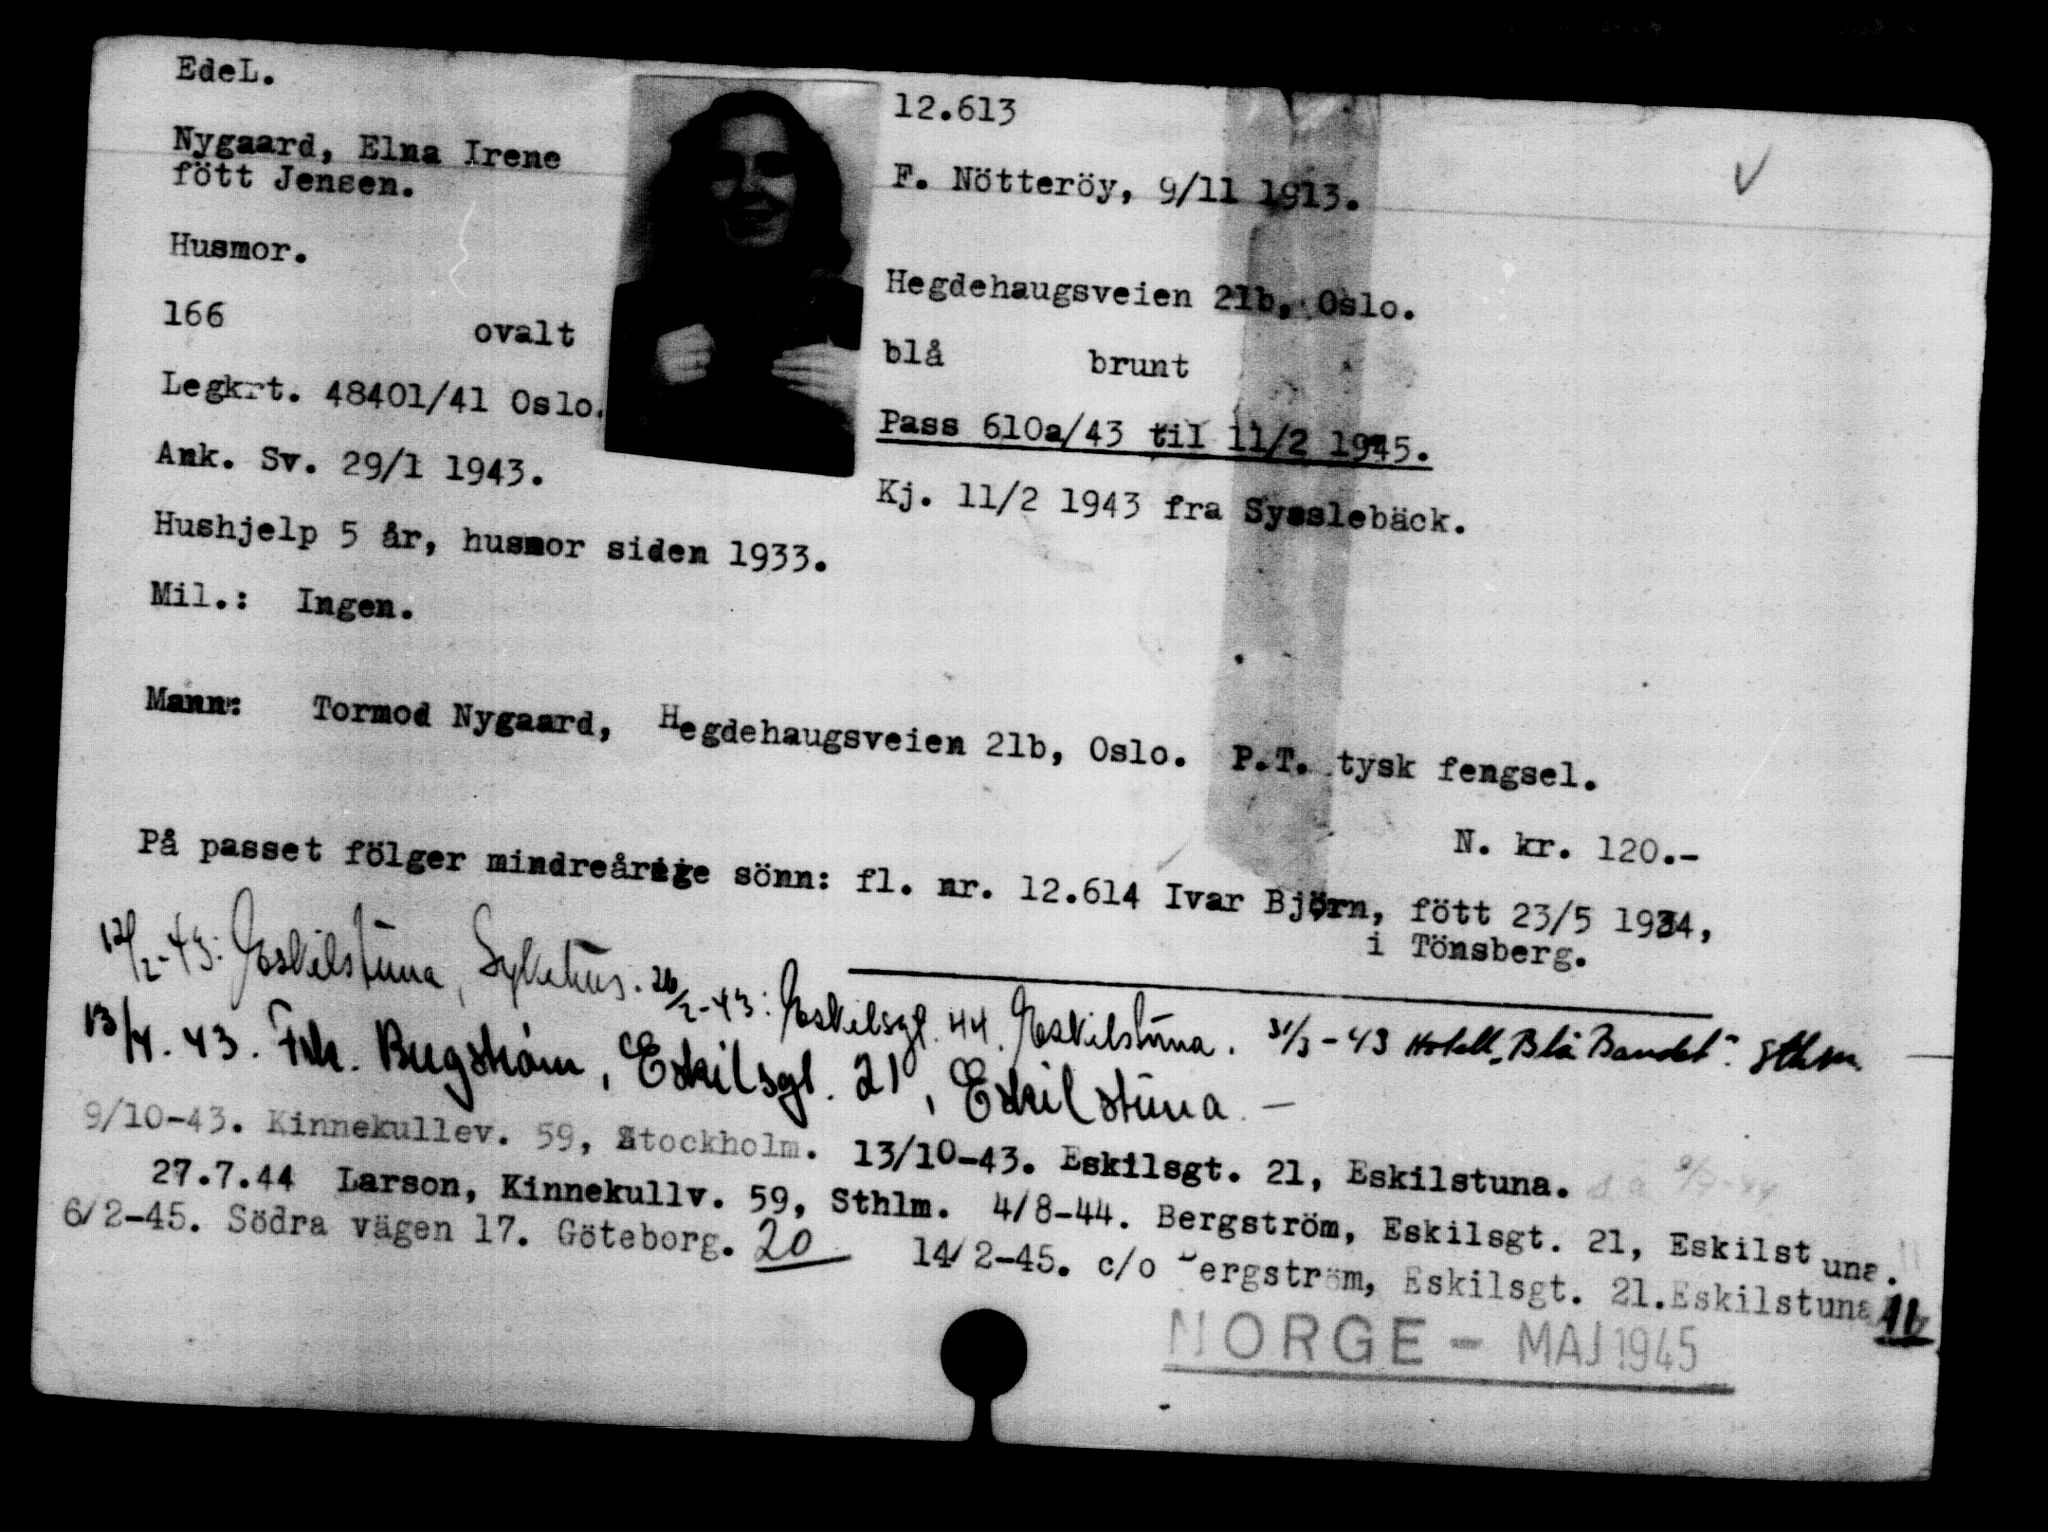 EdeL.
12.613
Nygaard, Elna Irene
fött Jensen.
F. Nötteröy, 9/11 1913.
Husmor.
Hegdehaugsveien 21b, Oslo.
166 ovalt
blå brunt
Legkrt. 48401/41 Oslo.
Pass 610a/43 til 11/2 1945.
Ank. Sv. 29/1 1943.
Kj. 11/2 1943 fra Sysslebäck.
Hushjelp 5 år, husmor siden 1933.
Mil.: Ingen.
Mann: Tormod Nygaard, Hegdehaugsveien 21b, Oslo. P.T. tysk fengsel.
N. kr. 120.-
På passet fölger mindreårige sönn: fl. nr. 12.614 Ivar Björn, fött 23/5 1934,
i Tönsberg.
12/2-43: Eskilstuna, Sykehus. 26/2-43: Eskilsgt. 44. Eskilstuna. 31/3-43 Hotell "Blå Bandet". Sthm.
13/4. 43. Frk. Bergström, Eskilsgt. 21, Eskilstuna –
9/10-43. Kinnekullev. 59, Stockholm. 13/10-43. Eskilsgt. 21, Eskilstuna.
27.7.44 Larson, Kinnekullv. 59, Sthlm. 4/8-44. Bergström, Eskilsgt. 21, Eskilstuna.
6/2-45. Södra vägen 17. Göteborg. 20 14/2-45. c/o Bergström, Eskilsgt. 21. Eskilstuna
NORGE - MAJ 1945